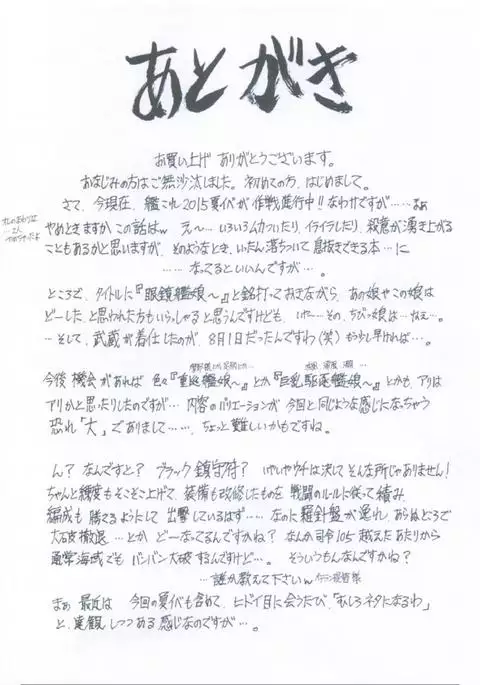 あとがき
お買い上げ ありがとうございます。
おなじみの方はご無沙汰しました。初めての方、はじめまして。
さて、今現在、艦これ2015夏イベが作戦進行中!!なわけですが……まぁ
やめときますか、この話はw え〜… いろいろムカついたり、イライラしたり、殺意が湧き上がる
こともあるかと思いますが、そのようなとき、いったん落ちついて息抜きできる本…に
……なってるといいんですが…。
ところで、タイトルに『眼鏡艦娘〜』と銘打っておきながら、あの娘やこの娘は
どーした、と思われた方もいらっしゃると思うんですけども、いやー…その、ちびっ娘は…ねぇ…。
…そして、武蔵が着任したのが、8月1日だったんですわ(笑) もう少し早ければ…。
今後 機会があれば 色々『重巡艦娘〜』とか『巨乳駆逐艦娘〜』とかも、アリは
アリかと思ったりしたのですが… 内容のバリエーションが 今回と同じような感じになっちゃう
恐れ「大」でありまして……、ちょっと難しいかもですね。
ん? なんですと? ブラック鎮守府? いやいやウチは決してそんな所じゃありません!
ちゃんと練度もそこそこ上げて、装備も改修したものを 戦闘のルールに従って積み、
編成も 勝てるようにして 出撃しているはず……なのに 羅針盤が逸れ、あらぬところで
大破撤退…とか、どーなってるんですかね? なんか司令105越えたあたりから
通常海域でも バンバン大破するんですけど…。そういうもんなんですかね?
…誰か教えて下さいw
まぁ 最近は 今回の夏イベも含めて、ヒドイ目に会うたび、「むしろネタになるわ」
と、達観しつつある感じなのですが…。